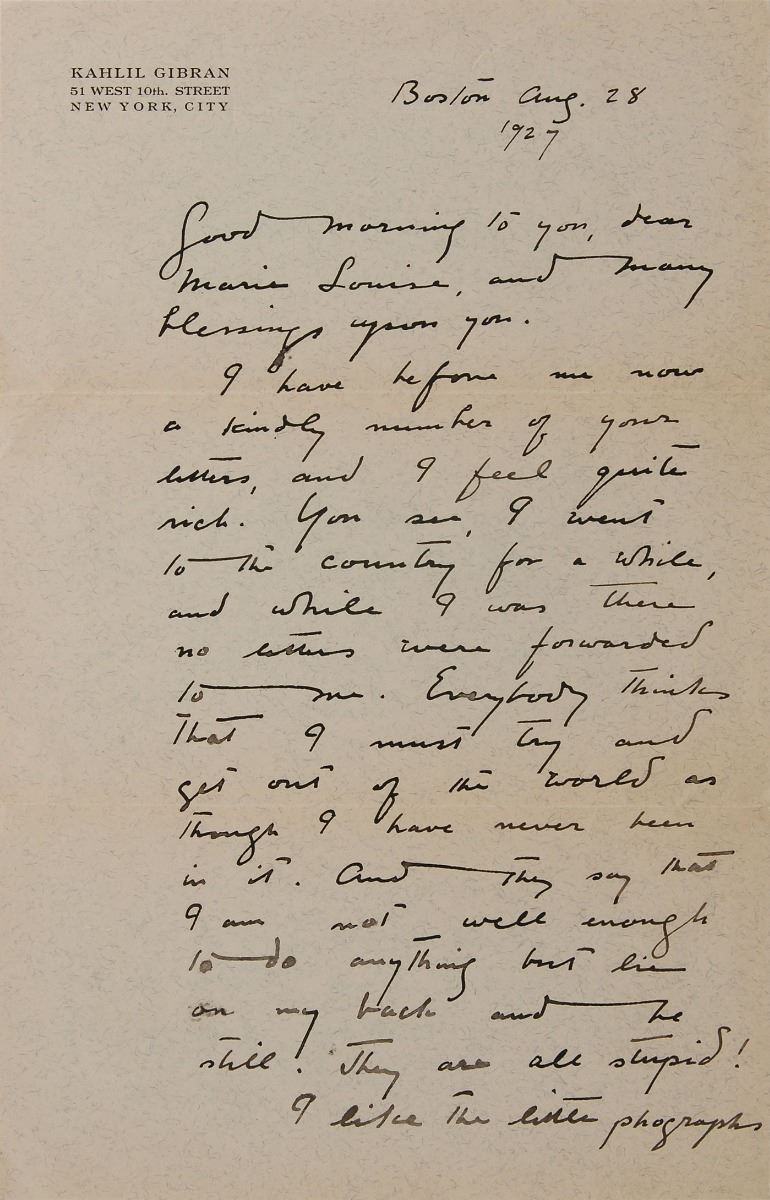 KAHLIL GIBRAN
51 WEST 10th. STREET
NEW YORK, CITY
Boston Aug. 28
1927
Good morning to you, dear
Marie Louise, and many
blessings upon you.
I have before me now
a kindly number of your
letters, and I feel quite
rich. You see, I went
to the country for a while,
and while I was there
no letters were forwarded
to me. Everybody thinks
that I must try and
get out of the world as
though I have never been
in it. And they say that
I am not well enough
to do anything but lie
on my back and be
still. They are all stupid!
I like the little phographs